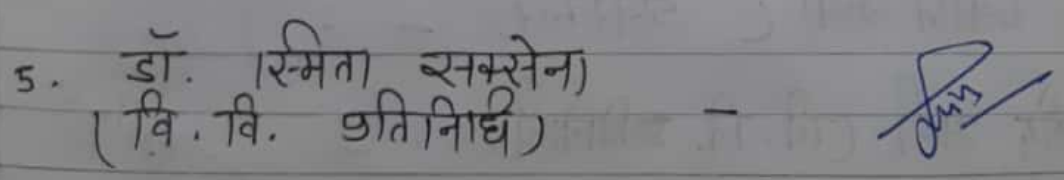 5. डॉ. स्मिता सक्सेना
(वि. वि. प्रतिनिधि) -